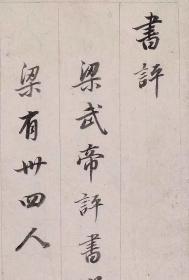 書評
梁武帝評書
梁有卌四人